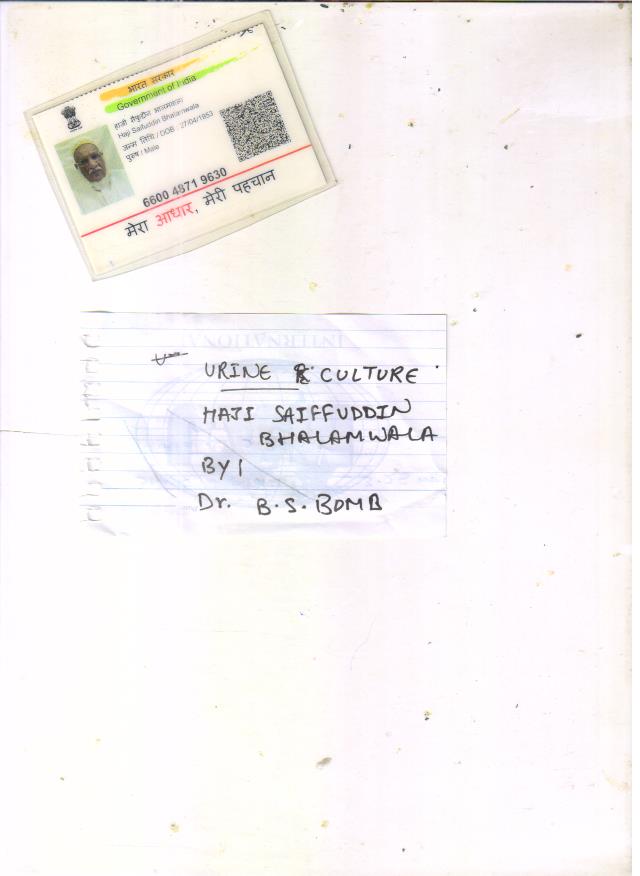 भारत सरकार
Government of India
हाजी सैफुद्दीन भालमवाला
Haji Saifuddin Bhalamwala
जन्म तिथि / DOB : 27/04/1953
पुरुष / Male
6600 4871 9630
मेरा आधार, मेरी पहचान
INTERNATIONAL
URINE CULTURE
HAJI SAIFFUDDIN
BHALAMWALA
BY |
Dr. B.S. BOMB